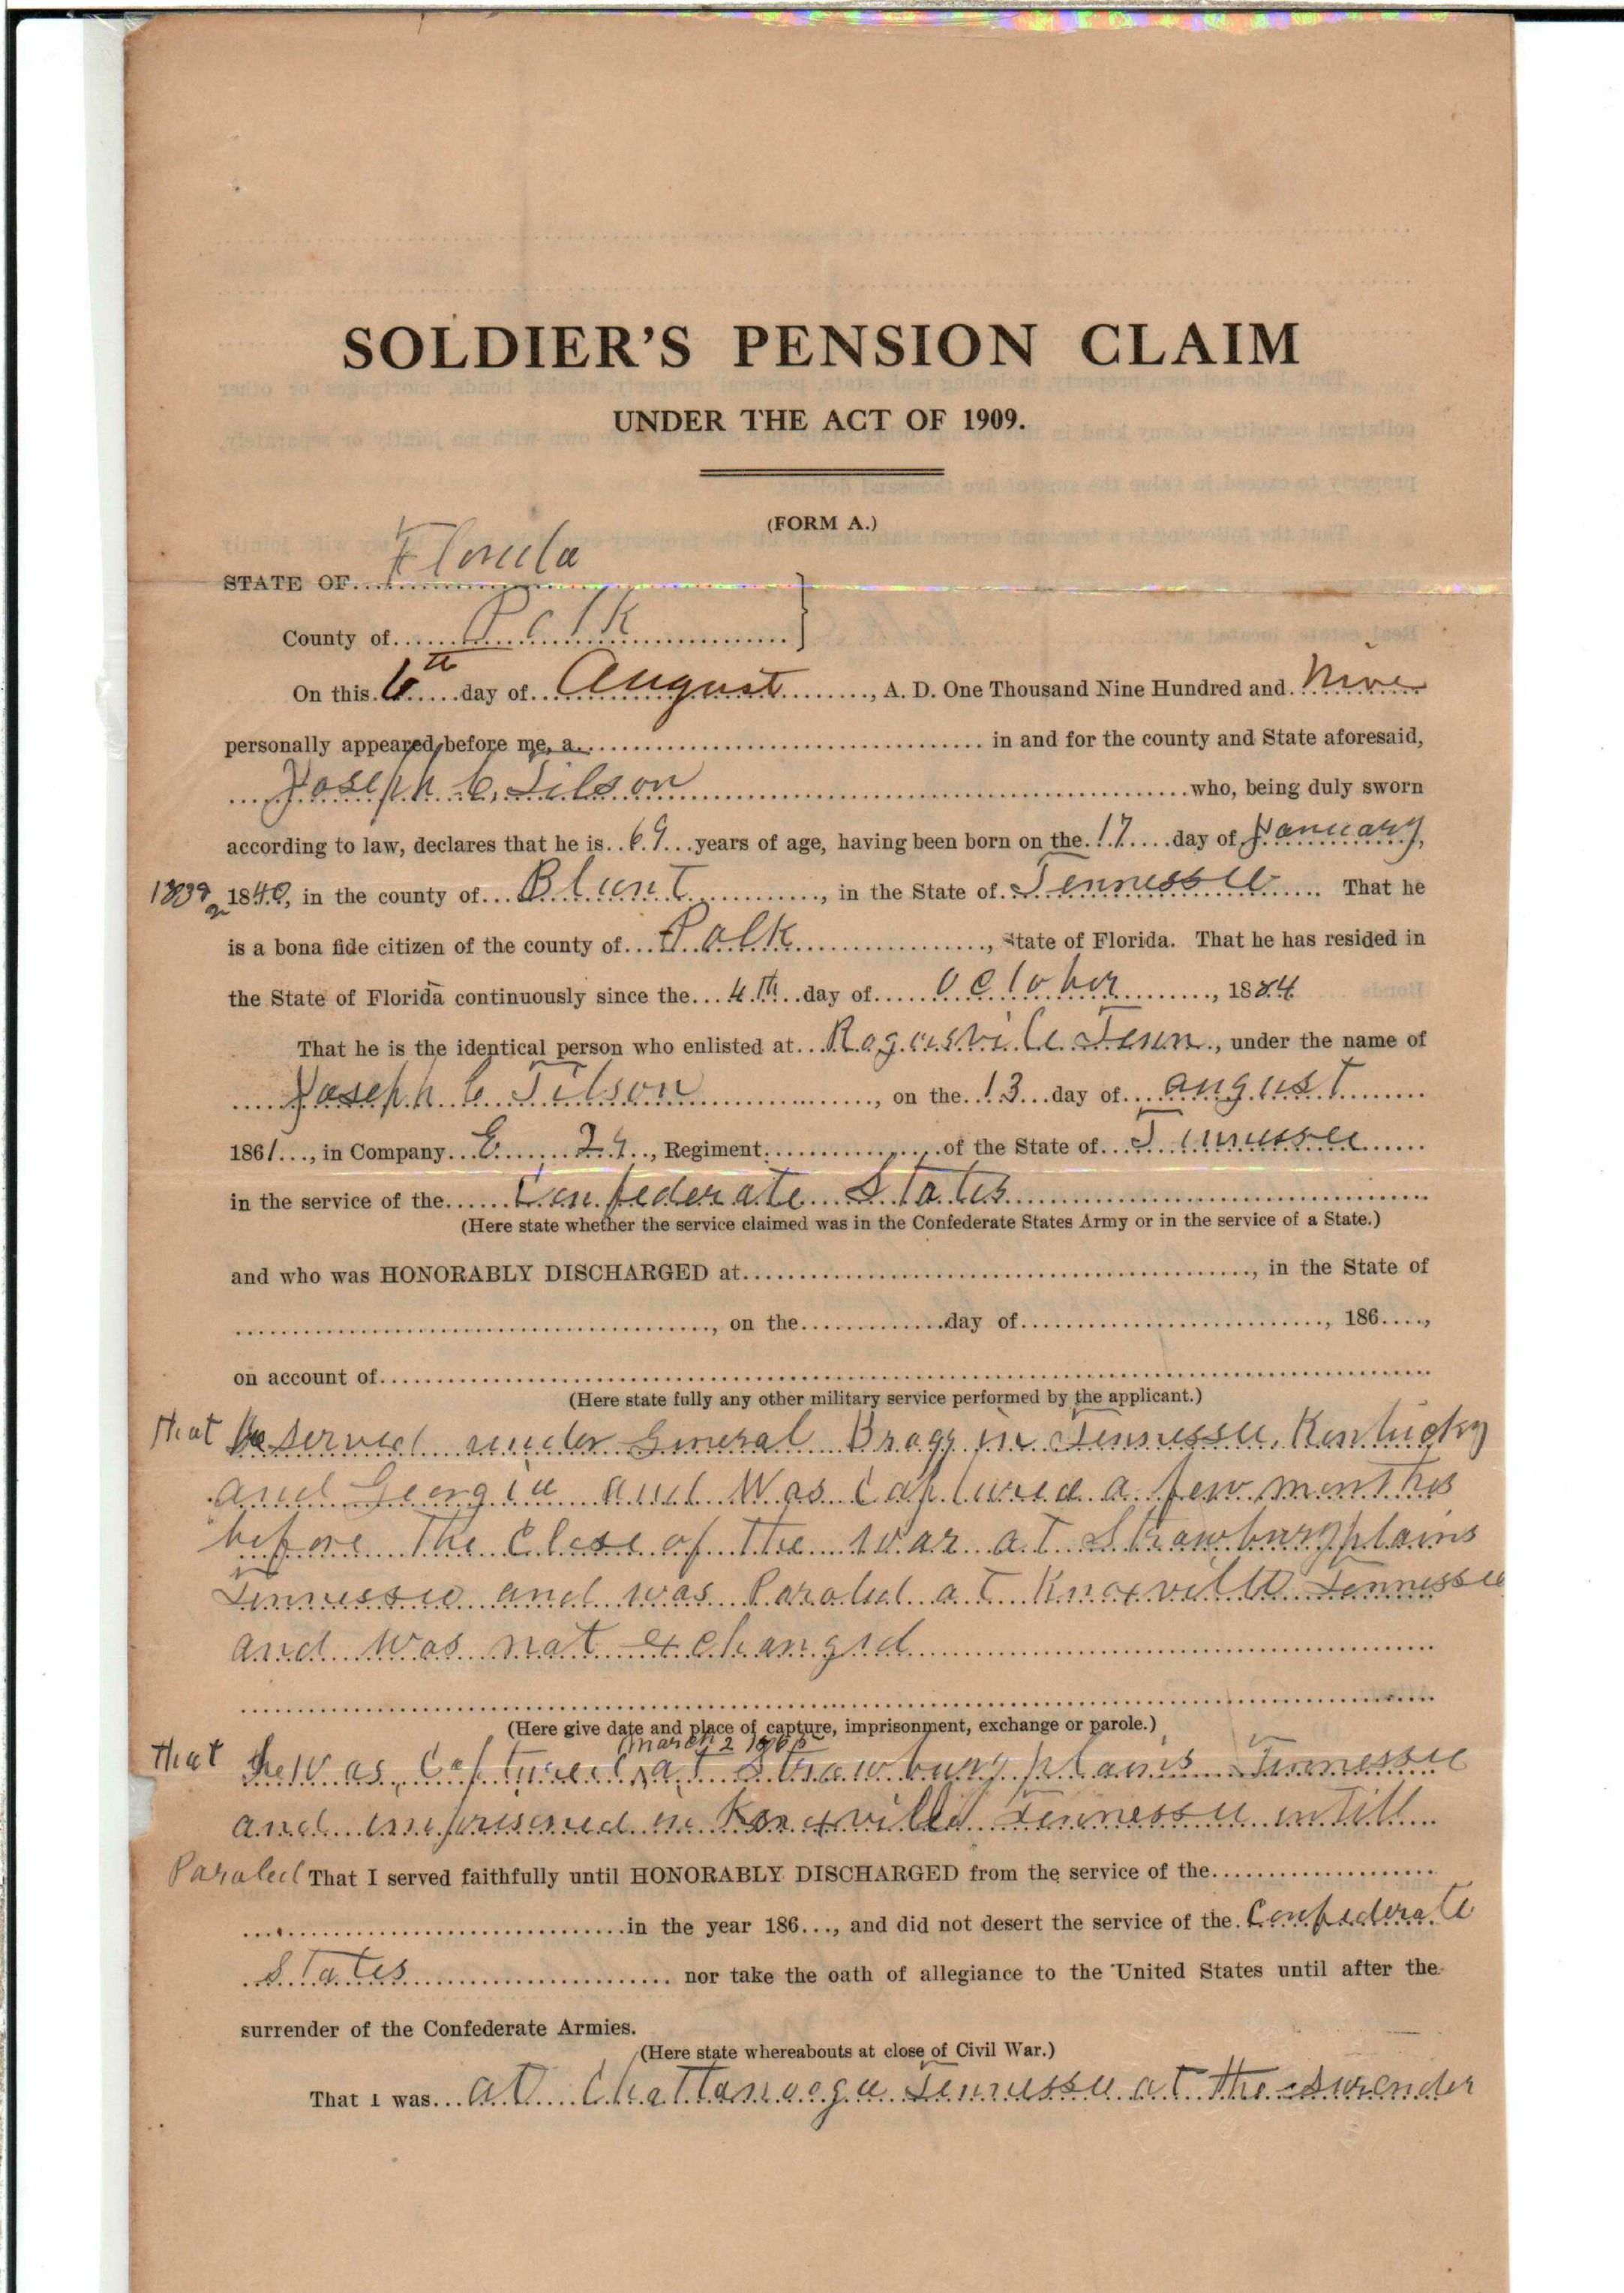 SOLDIER'S PENSION CLAIM
UNDER THE ACT OF 1909.
(FORM A.)
STATE OF Florida
County of Polk
On this 6th day of August, A. D. One Thousand Nine Hundred and Nine
personally appeared before me, a in and for the county and State aforesaid,
Joseph C. Tilson who, being duly sworn
according to law, declares that he is 69 years of age, having been born on the 17 day of January,
1839 1840, in the county of Blunt, in the State of Tennessee That he
is a bona fide citizen of the county of Polk, State of Florida. That he has resided in
the State of Florida continuously since the 4th day of October, 1884
That he is the identical person who enlisted at Rogersvile Tenn., under the name of
Joseph C Tilson, on the 13 day of august
1861, in Company E, 29, Regiment of the State of Tennessee
in the service of the Confederate States
(Here state whether the service claimed was in the Confederate States Army or in the service of a State.)
and who was HONORABLY DISCHARGED at, in the State of
, on the day of, 186,
on account of
(Here state fully any other military service performed by the applicant.)
that he served under General Bragg in Tennessee, Kentucky
and Georgia and Was Captured a few months
before the Close of the war at Strawburyplains
Tennessee and was Paroled at Knoxville Tennessee
and Was not exchanged
(Here give date and place of capture, imprisonment, exchange or parole.)
march 2 1865
that he was Captured at Strawburyplains Tennessee
and imprisened in Knoxville Tennessee untill
Paroled That I served faithfully until HONORABLY DISCHARGED from the service of the
in the year 186, and did not desert the service of the Confederate
States nor take the oath of allegiance to the United States until after the
surrender of the Confederate Armies.
(Here state whereabouts at close of Civil War.)
That I was at Chattanooga Tennessee at the Surender